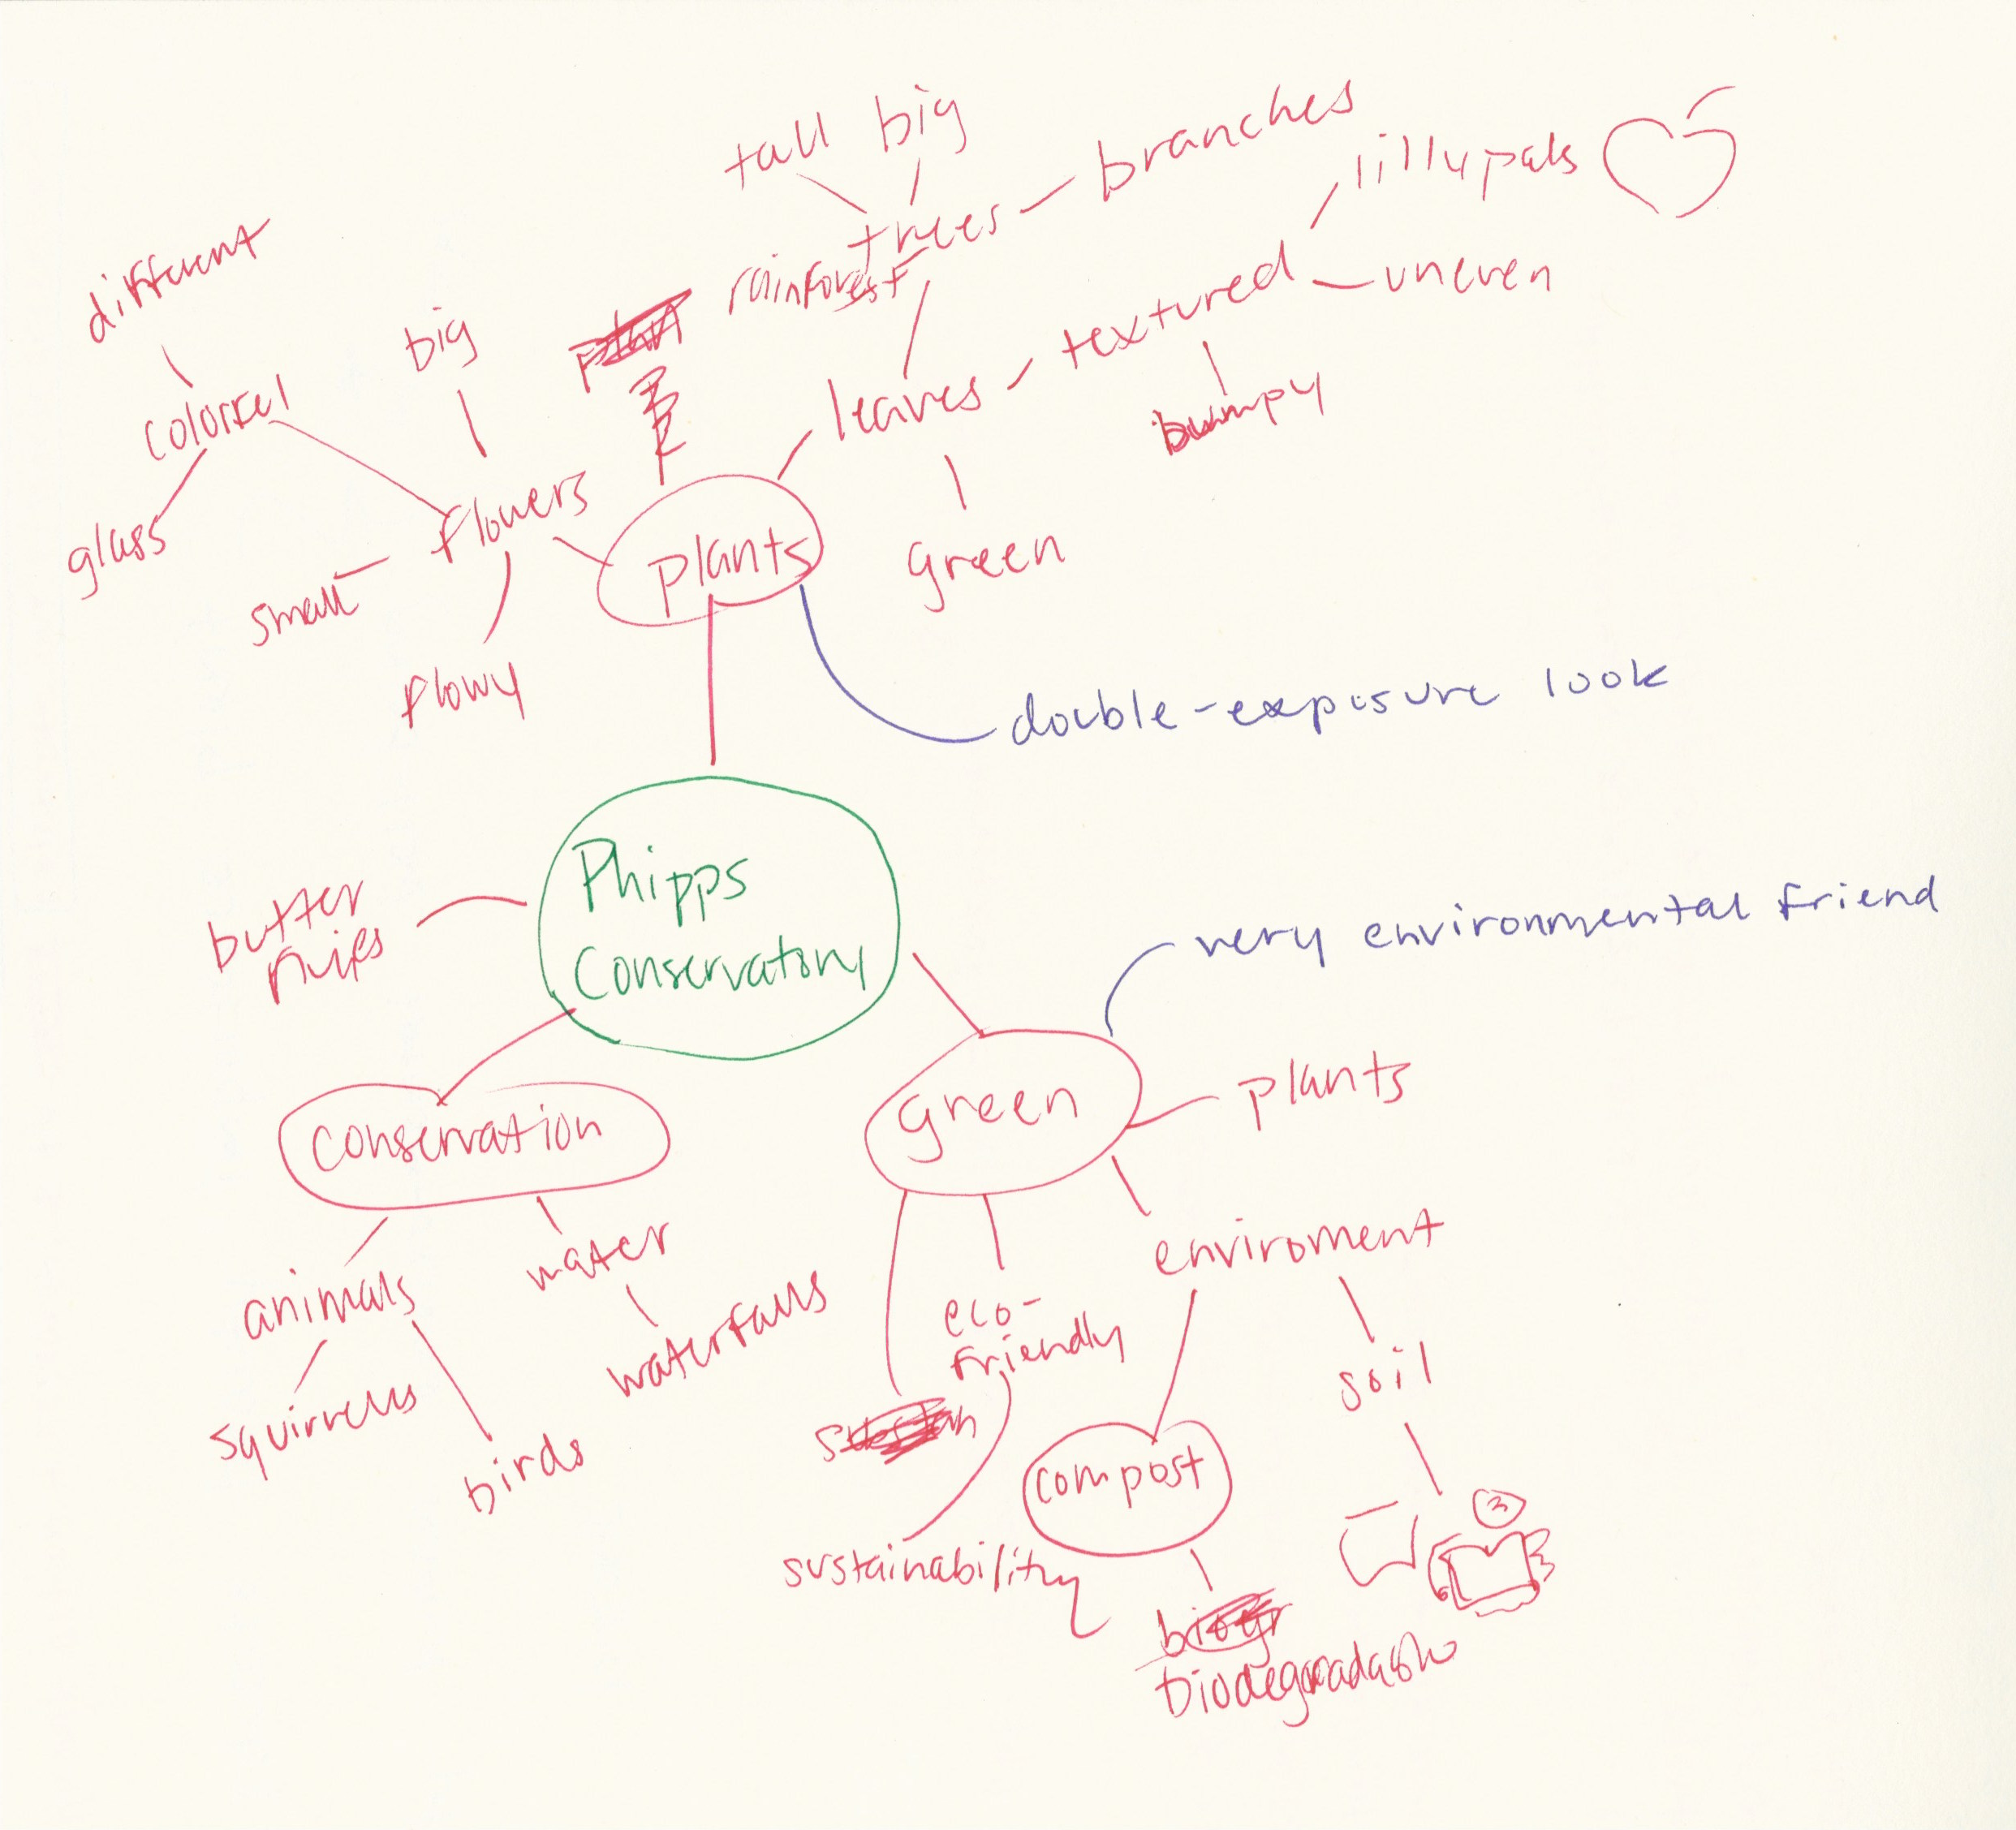 tall big
branches
lillypads
trees
rainforest
different
big
textured
uneven
leaves
bumpy
glass
flowers
small
plants
green
flowy
double-exposure look
Phipps
Conservatory
butter
flies
very environmental friend
green
plants
conservation
water
enviroment
animals
waterfalls
eco-
friendly
soil
squirrels
birds
compost
sustainability